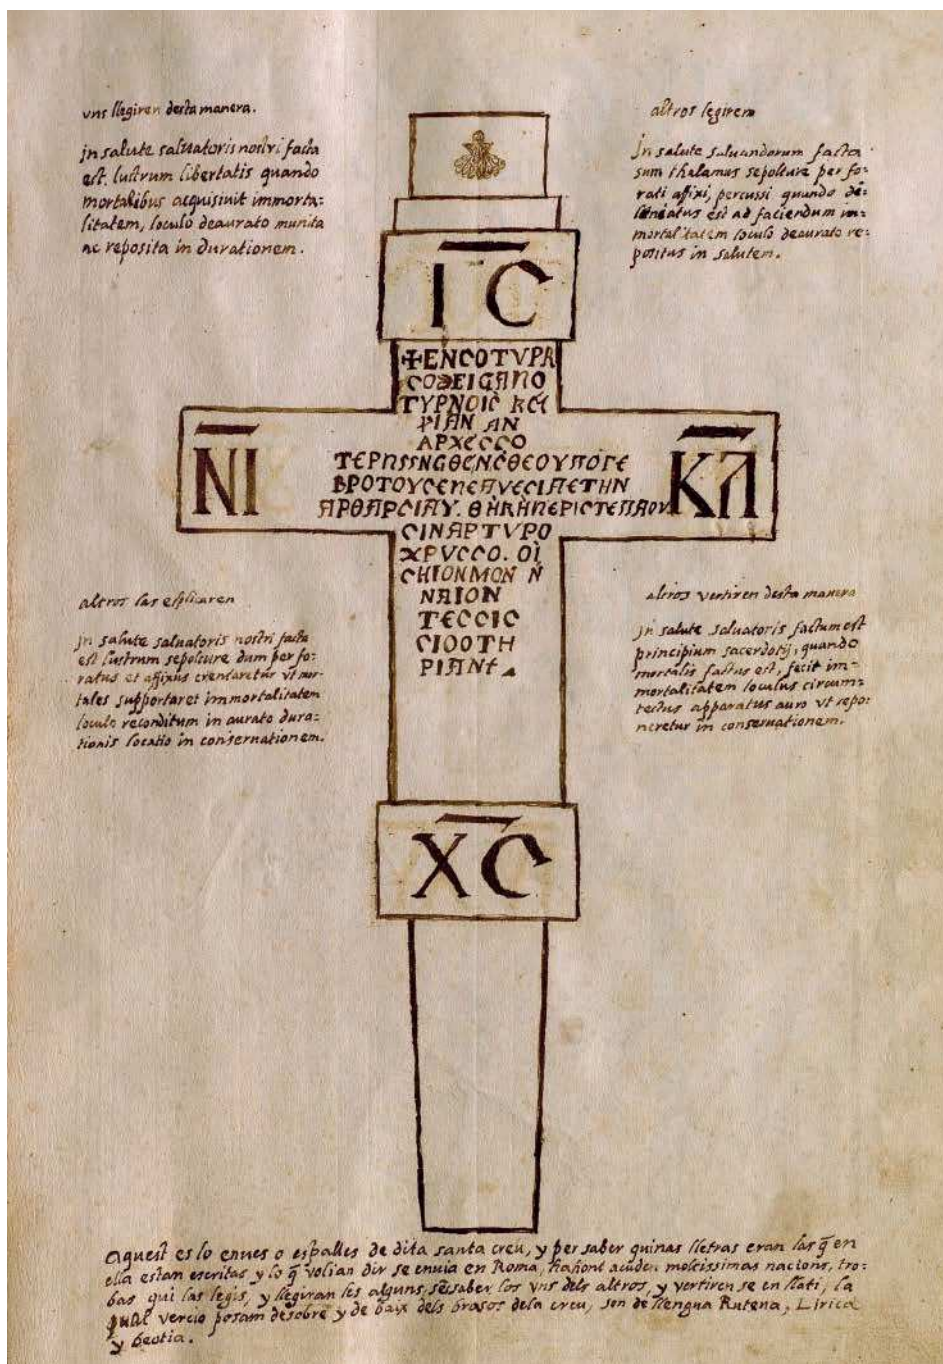 vns llegiren desta manera.
jn salute saluatoris nostri facta
est. lustrum libertatis quando
mortalibus acquisiuit immorta:
litatem, loculo deaurato munita
ac reposita in durationem.
altros legiren
jn salute saluandorum facta
sum thalamus sepolture per fo:
rati affixi, percussi quando
est ad faciendum im:
mortalitatem loculo deaurato re:
positus in salutem.
ΙC
✠ΕΝCΟΤVΡΑ
ΤΥΡΝΟΙC
ΑΡΧЄCCΟ
ΝΙ
ΚΛ
CΙΝΑΡΤVΡΟ
ΧΡVCCΟ. ΟΙ
CΗΙΟΝΜΟΝ Ν
ΝΑΙΟΝ
ΤЄCCΙC
CΙΟΟΤΗ
ΡΙΑΝ
altros las esplicaren
jn salute saluatoris nostri facta
est lustrum sepolture dum perfo:
ratus et affixus crentaretur vt mor
tales supportaret immortalitatem
loculo reconditum in aurato dura:
tionis locatio in conseruationem.
altros vertiren desta manera
jn salute saluatoris factum est
principium sacerdotij, quando
mortalis factus est, fecit im:
mortalitatem loculus circum:
tectus apparatus auro vt repo:
neretur in conseruationem.
ΧC
Aquest es lo enues o espalles de dita santa creu, y per saber quinas lletras eran las q̃ en
ella estan escritas y lo q̃ volian dir se enuia en Roma, hahont acuden moltissimas nacions, tro:
bas qui las legis, y llegiran les alguns, saber los vns dels altros, y vertiren se en llati, la
qual vercio posam desobre y de baix dels brasos dela creu, son de llengua Rutena, Lirica
y beotia.